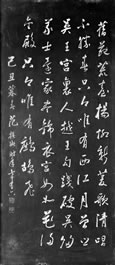 舊苑荒臺楊柳新菱歌清唱
不勝春只今唯有西江月曾照
吳王宮裏人越王勾踐破吳歸
義士還家盡錦衣宮女如花滿
春殿只今唯有鷓鴣飛
己丑